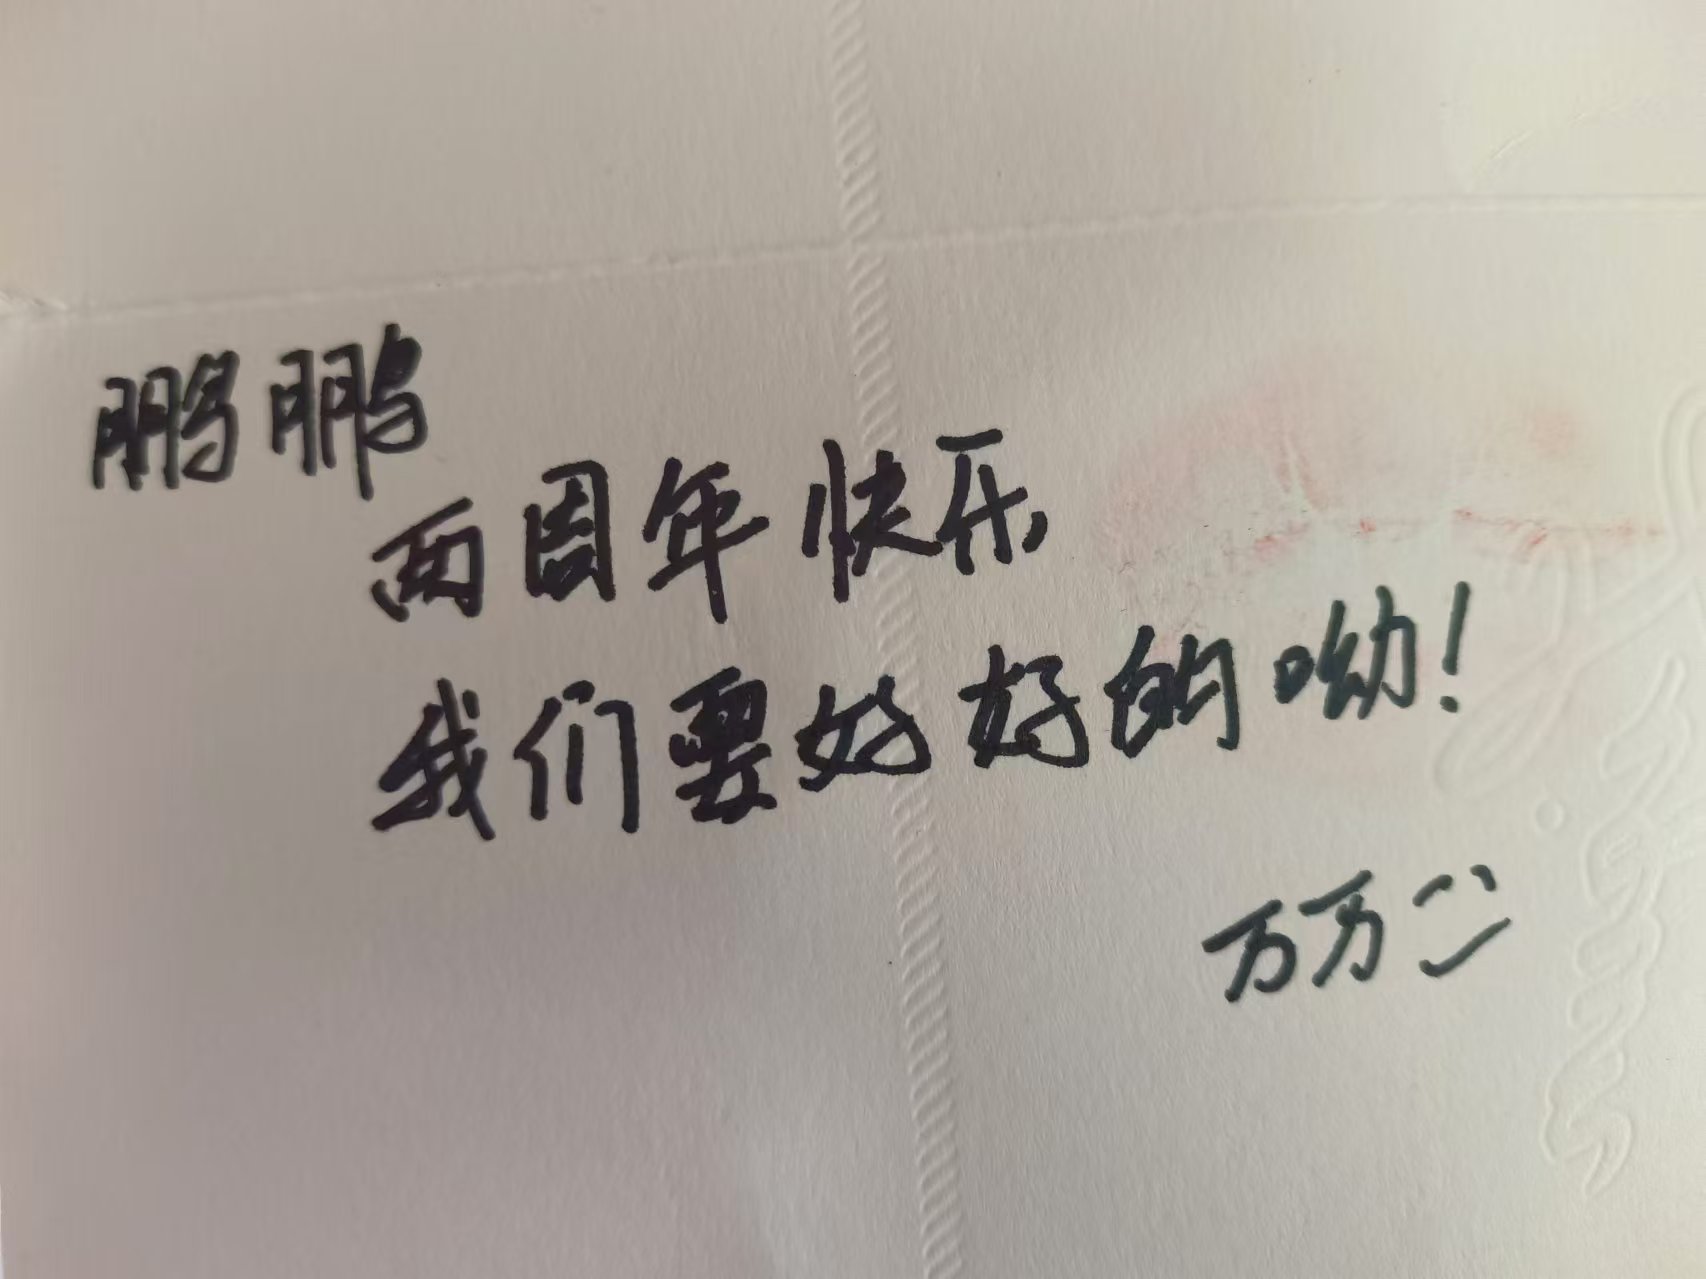 鹏鹏
两周年快乐
我们要好好的呦!
万万